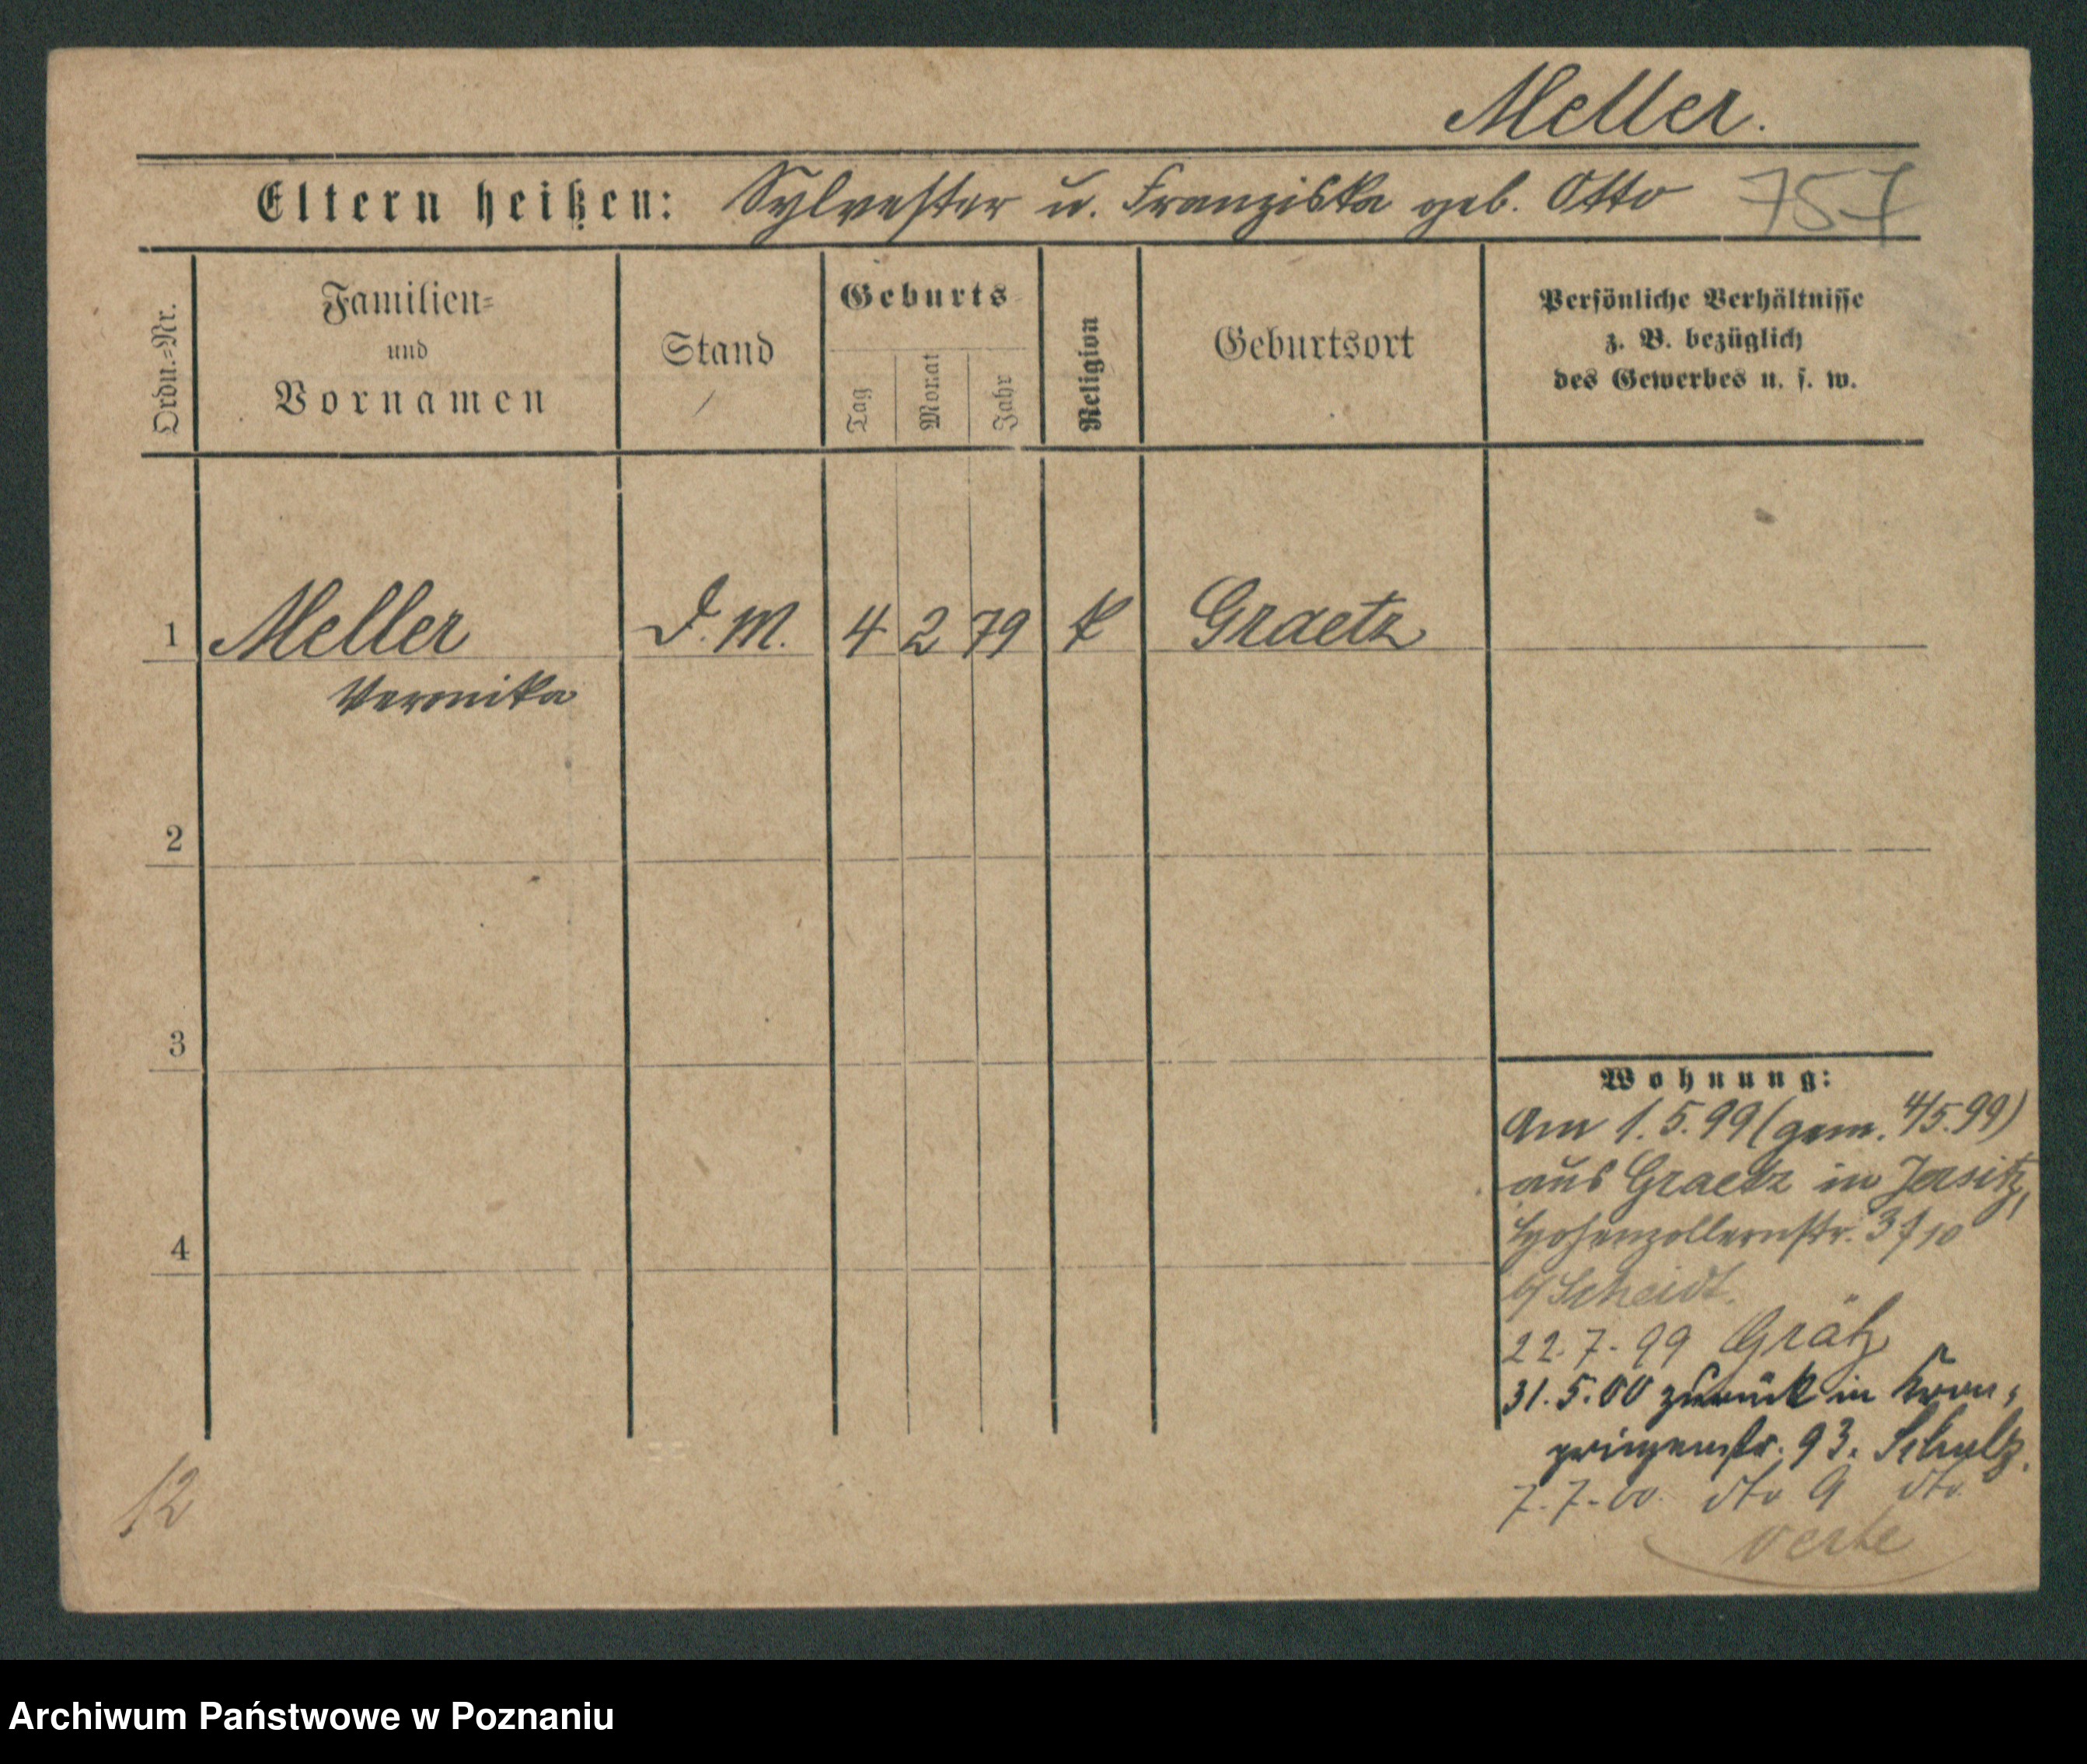 Meller.
Eltern heißen: Sylvester u. Franziska geb. Otto 757
Ordn.=Nr.
Familien=
und
Vornamen
Stand
Geburts
Tag
Monat
Jahr
Religion
Geburtsort
Persönliche Verhältnisse
z. B. bezüglich
des Gewerbes u. s. w.
1 Meller D. M. 4 2 79 k Graetz
Veronika
2
3
4
Wohnung:
Am 1.5.99 (gem. 4/5.99)
aus Graetz in Jersitz,
Hohenzollernstr.
b/ Scheidt.
22.7.99 Grätz
31.5.00 zurück in Kron-
prinzenstr. 93. Schulz.
7.7.00. dto 9 dto.
verte
12
Archiwum Państwowe w Poznaniu